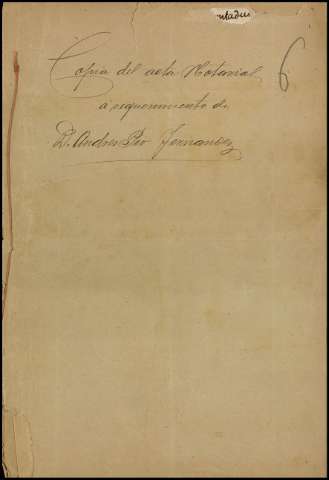 ntadus
6
Copia del acta Notarial
a requerimiento de
D. Andres Peo Fernandez